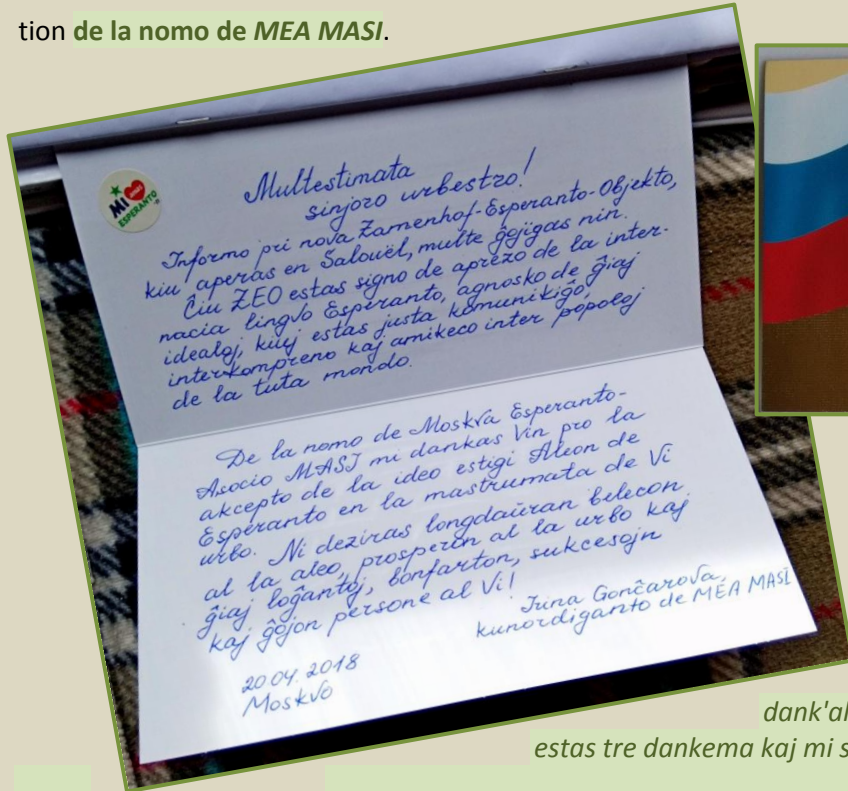 tion de la nomo de MEA MASI.
MI
ESPERANTO
Multestimata
sinjoro urbestro!
Informo pri nova Zamenhof-Esperanto-Objekto,
kiu aperas en Salouël, multe ĝojigas nin.
Ĉiu ZEO estas signo de aprezo de la inter-
nacia lingvo Esperanto, agnosko de ĝiaj
idealoj, kiuj estas justa komunikiĝo,
interkompreno kaj amikeco inter popoloj
de la tuta mondo.
De la nomo de Moskva Esperanto-
Asocio MASI mi dankas Vin pro la
akcepto de la ideo estigi Aleon de
Esperanto en la mastrumata de Vi
urbo. Ni deziras longdaŭran belecon
al la aleo, prosperon al la urbo kaj
ĝiaj loĝantoj, bonfarton, sukcesojn
kaj ĝojon persone al Vi!
Irina Gonĉarova,
kunordiganto de MEA MASI
20.04.2018
Moskvo
dank'al
estas tre dankema kaj mi s